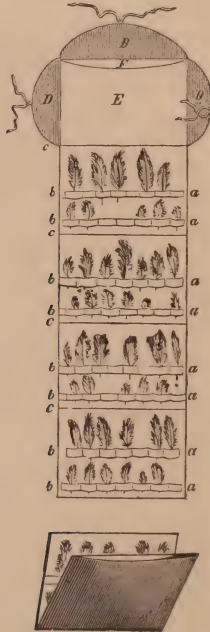 B
F
D E
c
b a
b a
c
b a
b a
c
b a
b a
c
b a
b a